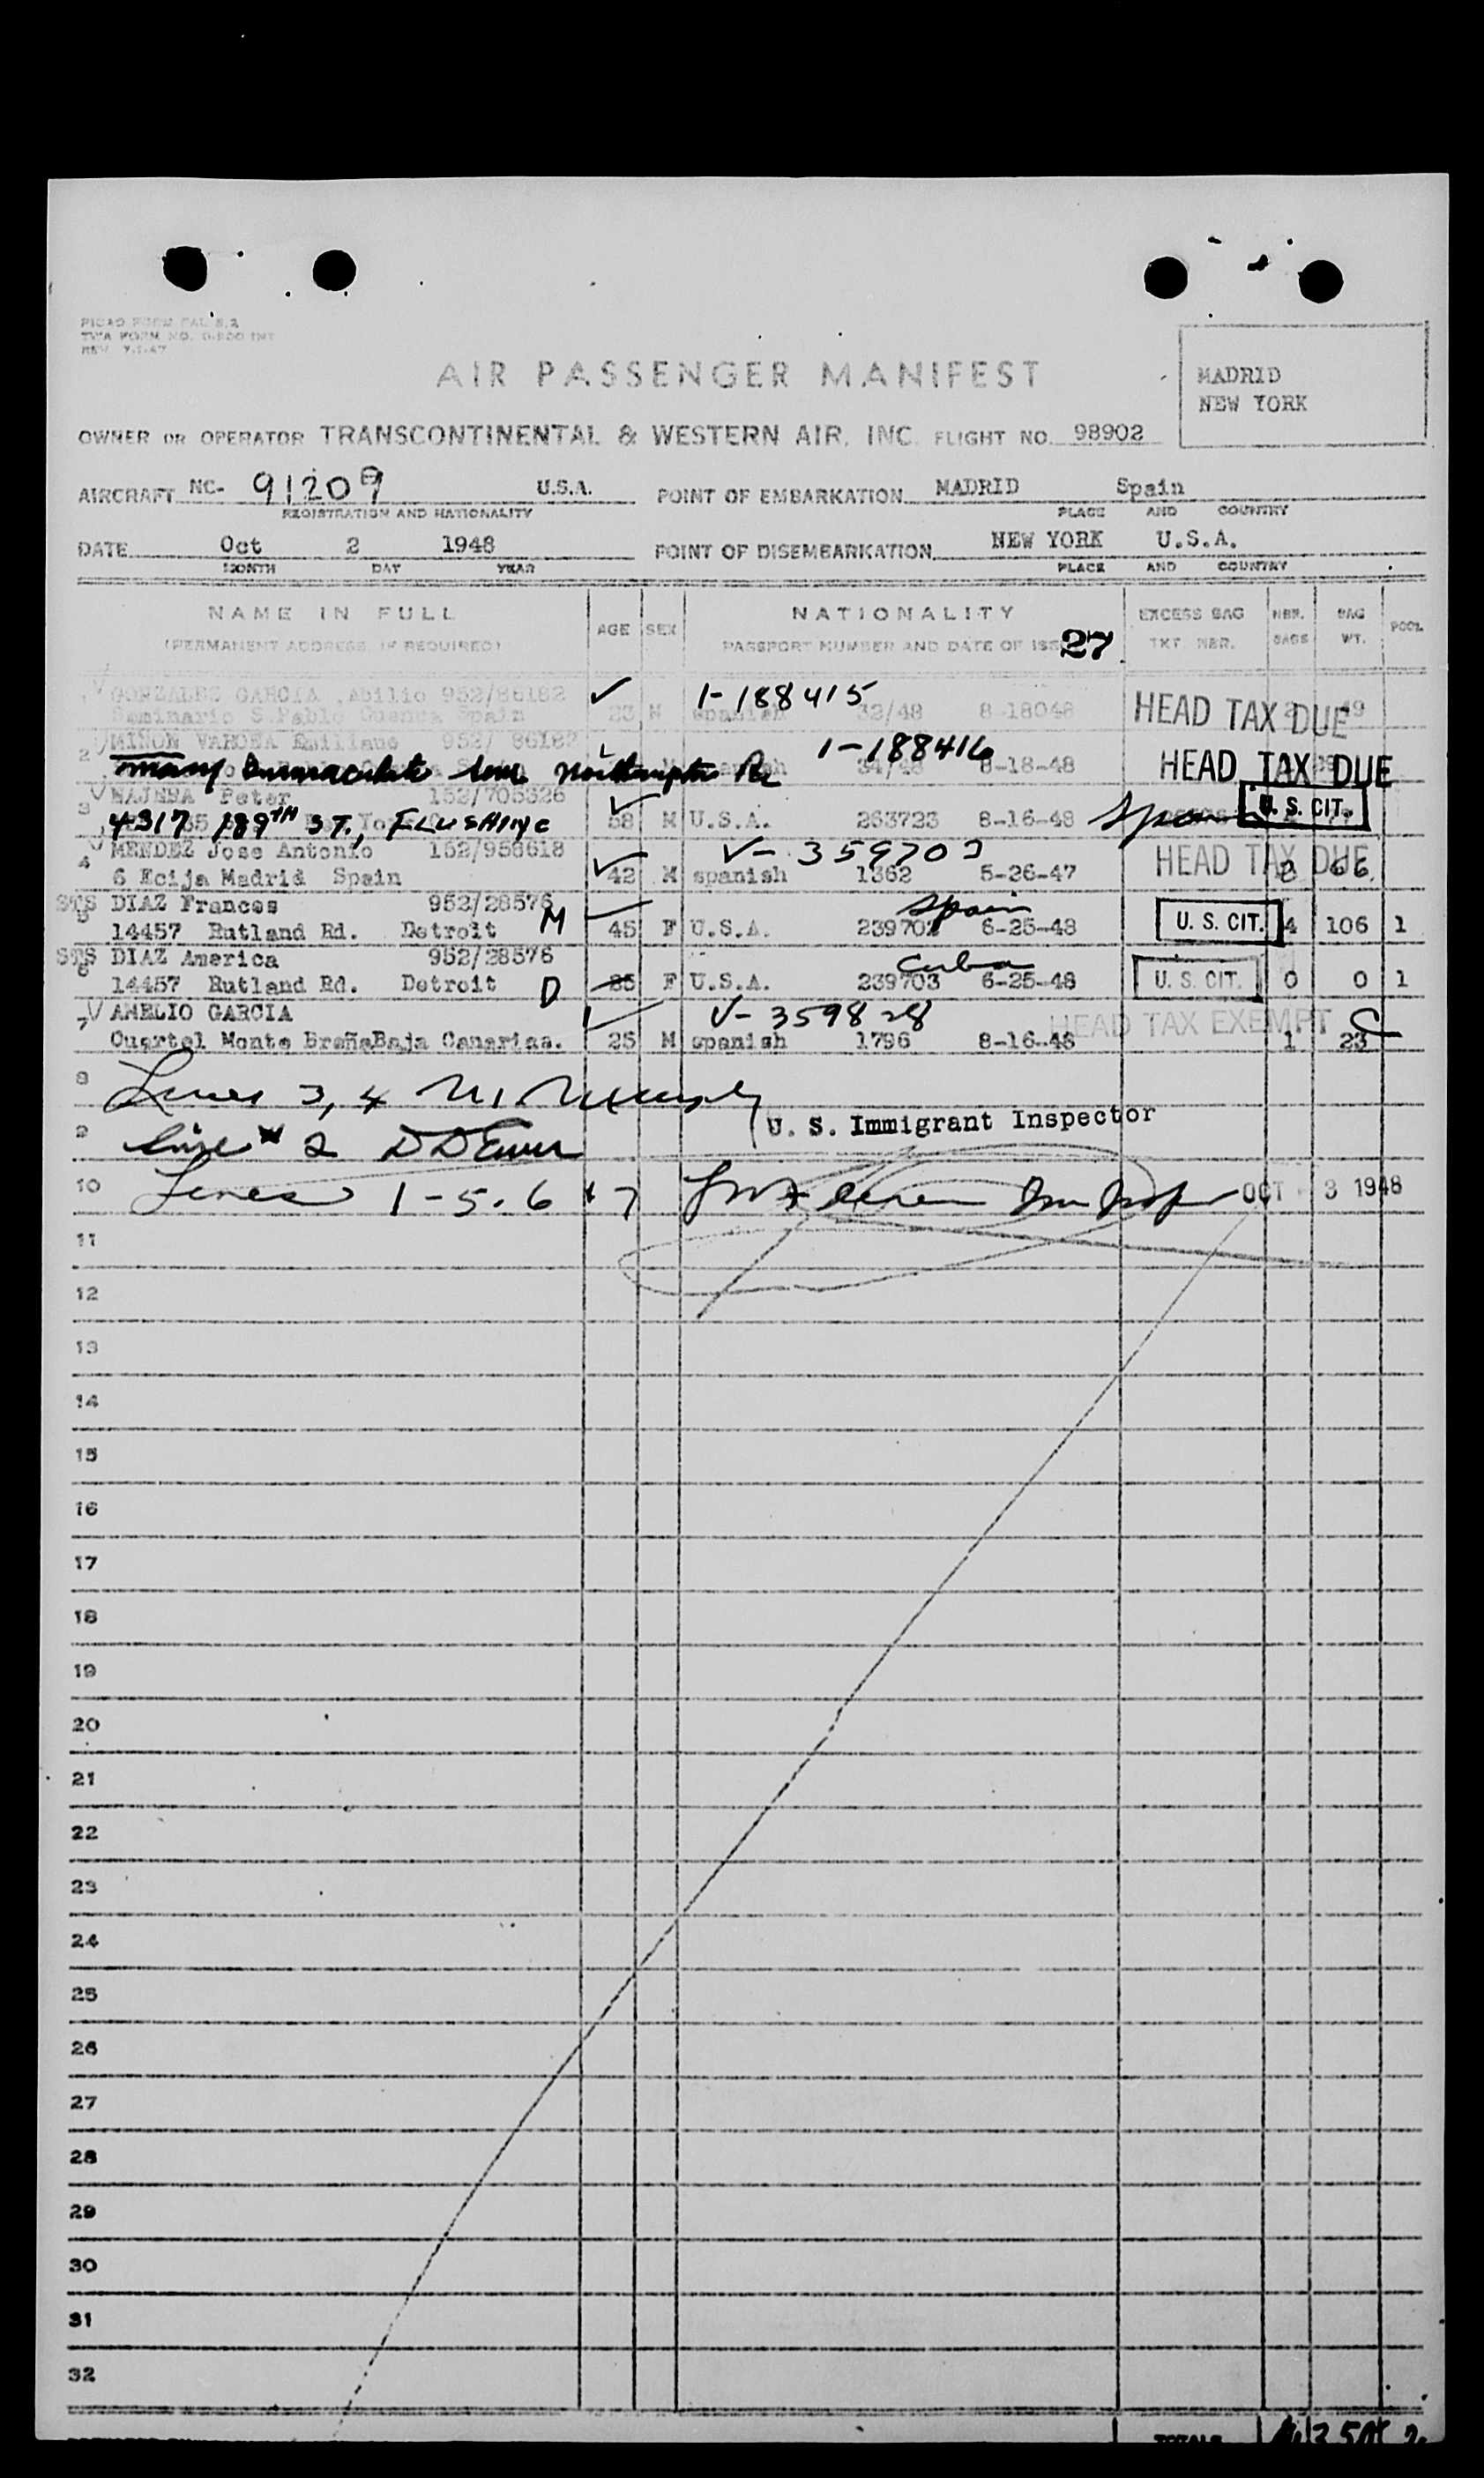 PICAO FORM PAL 8.2
TWA FORM NO.
REV. 7-1-47
AIR PASSENGER MANIFEST
MADRID
NEW YORK
OWNER OR OPERATOR TRANSCONTINENTAL & WESTERN AIR, INC. FLIGHT NO. 98902
AIRCRAFT NC- 91209 U.S.A. POINT OF EMBARKATION MADRID Spain
REGISTRATION AND NATIONALITY PLACE AND COUNTRY
DATE Oct 2 1948 POINT OF DISEMBARKATION NEW YORK U.S.A.
MONTH DAY YEAR PLACE AND COUNTRY
NAME IN FULL AGE SEX NATIONALITY EXCESS BAG NBR. BAG POOL
(PERMANENT ADDRESS IF REQUIRED) PASSPORT NUMBER AND DATE OF 27 TKT NBR. BAGS WT.
GONZALEZ GARCIA ,Abilio 952/86182 1-188415
Seminario S.Pablo Cuenca Spain 23 M spanish 32/48 8-18048 HEAD TAX DUE
2 MIÑON Emiliano 952/ 86182 1-188416
Mary Immaculate Northampton Pa 8-18-48 HEAD TAX DUE
3 Peter 152/705326
4317 189TH ST., FLUSHING 58 M U.S.A. 263723 8-16-48 Spain U. S. CIT.
4 MENDEZ Jose Antonio 152/958618 V- 359703 HEAD TAX DUE
6 Ecija Madrid Spain 42 M spanish 1362 5-26-47 2 66
STS DIAZ Frances 952/28576 Spain
5 14457 Rutland Rd. Detroit M 45 F U.S.A. 239702 6-25-48 U. S. CIT. 4 106 1
STS DIAZ America 952/28576 Cuba
6 14457 Rutland Rd. Detroit D F U.S.A. 239703 6-25-48 U. S. CIT. 0 0 1
7 AMELIO GARCIA V- 359828 HEAD TAX EXEMPT
Cuartel Monte BreñaBaja Canarias. 25 M spanish 1796 8-16-48 1 23
8 Lines 3, 4
U. S. Immigrant Inspector
9 Line 2
10 Lines 1-5. 6 + 7 OCT 3 1948
11
12
13
14
15
16
17
18
19
20
21
22
23
24
25
26
27
28
29
30
31
32
TOTALS